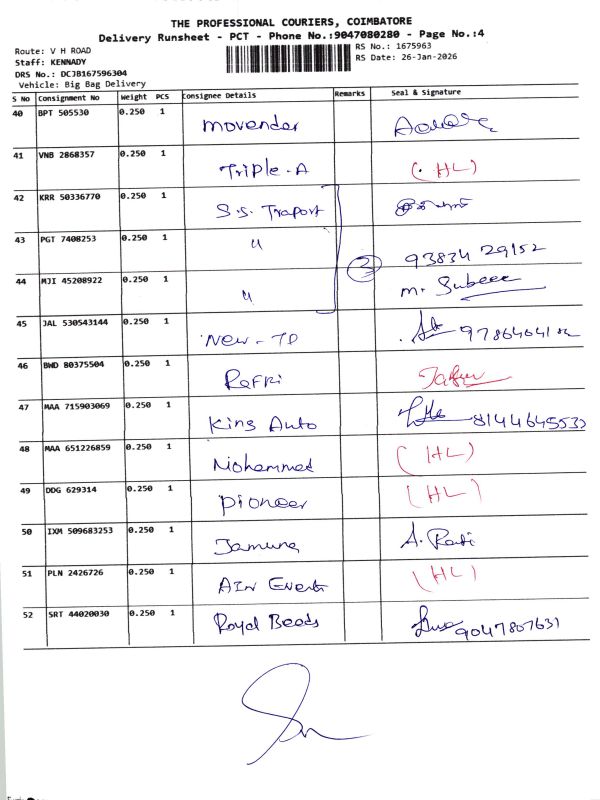 THE PROFESSIONAL COURIERS, COIMBATORE
Delivery Runsheet - PCT - Phone No.:9047080280 - Page No.:4
Route: V H ROAD
RS No.: 1675963
Staff: KENNADY
RS Date: 26-Jan-2026
DRS No.: DCJB167596304
Vehicle: Big Bag Delivery
S No Consignment No Weight PCS Consignee Details Remarks Seal & Signature
40 BPT 505530 0.250 1 movender
41 VNB 2868357 0.250 1 Triple-A (HL)
42 KRR 50336770 0.250 1 S.S. Traport
43 PGT 7408253 0.250 1 " 3 93834 29152
44 MJI 45208922 0.250 1 " m. Subeee
45 JAL 530543144 0.250 1 New-TD
46 BWD 80375504 0.250 1 Refri
47 MAA 715903069 0.250 1 King Auto 8144645533
48 MAA 651226859 0.250 1 Mohammed (HL)
49 DDG 629314 0.250 1 Pioneer (HL)
50 IXM 509683253 0.250 1 Jamuna A. Rati
51 PLN 2426726 0.250 1 AIN Events (HL)
52 SRT 44020030 0.250 1 Royal Beeds 9047807631